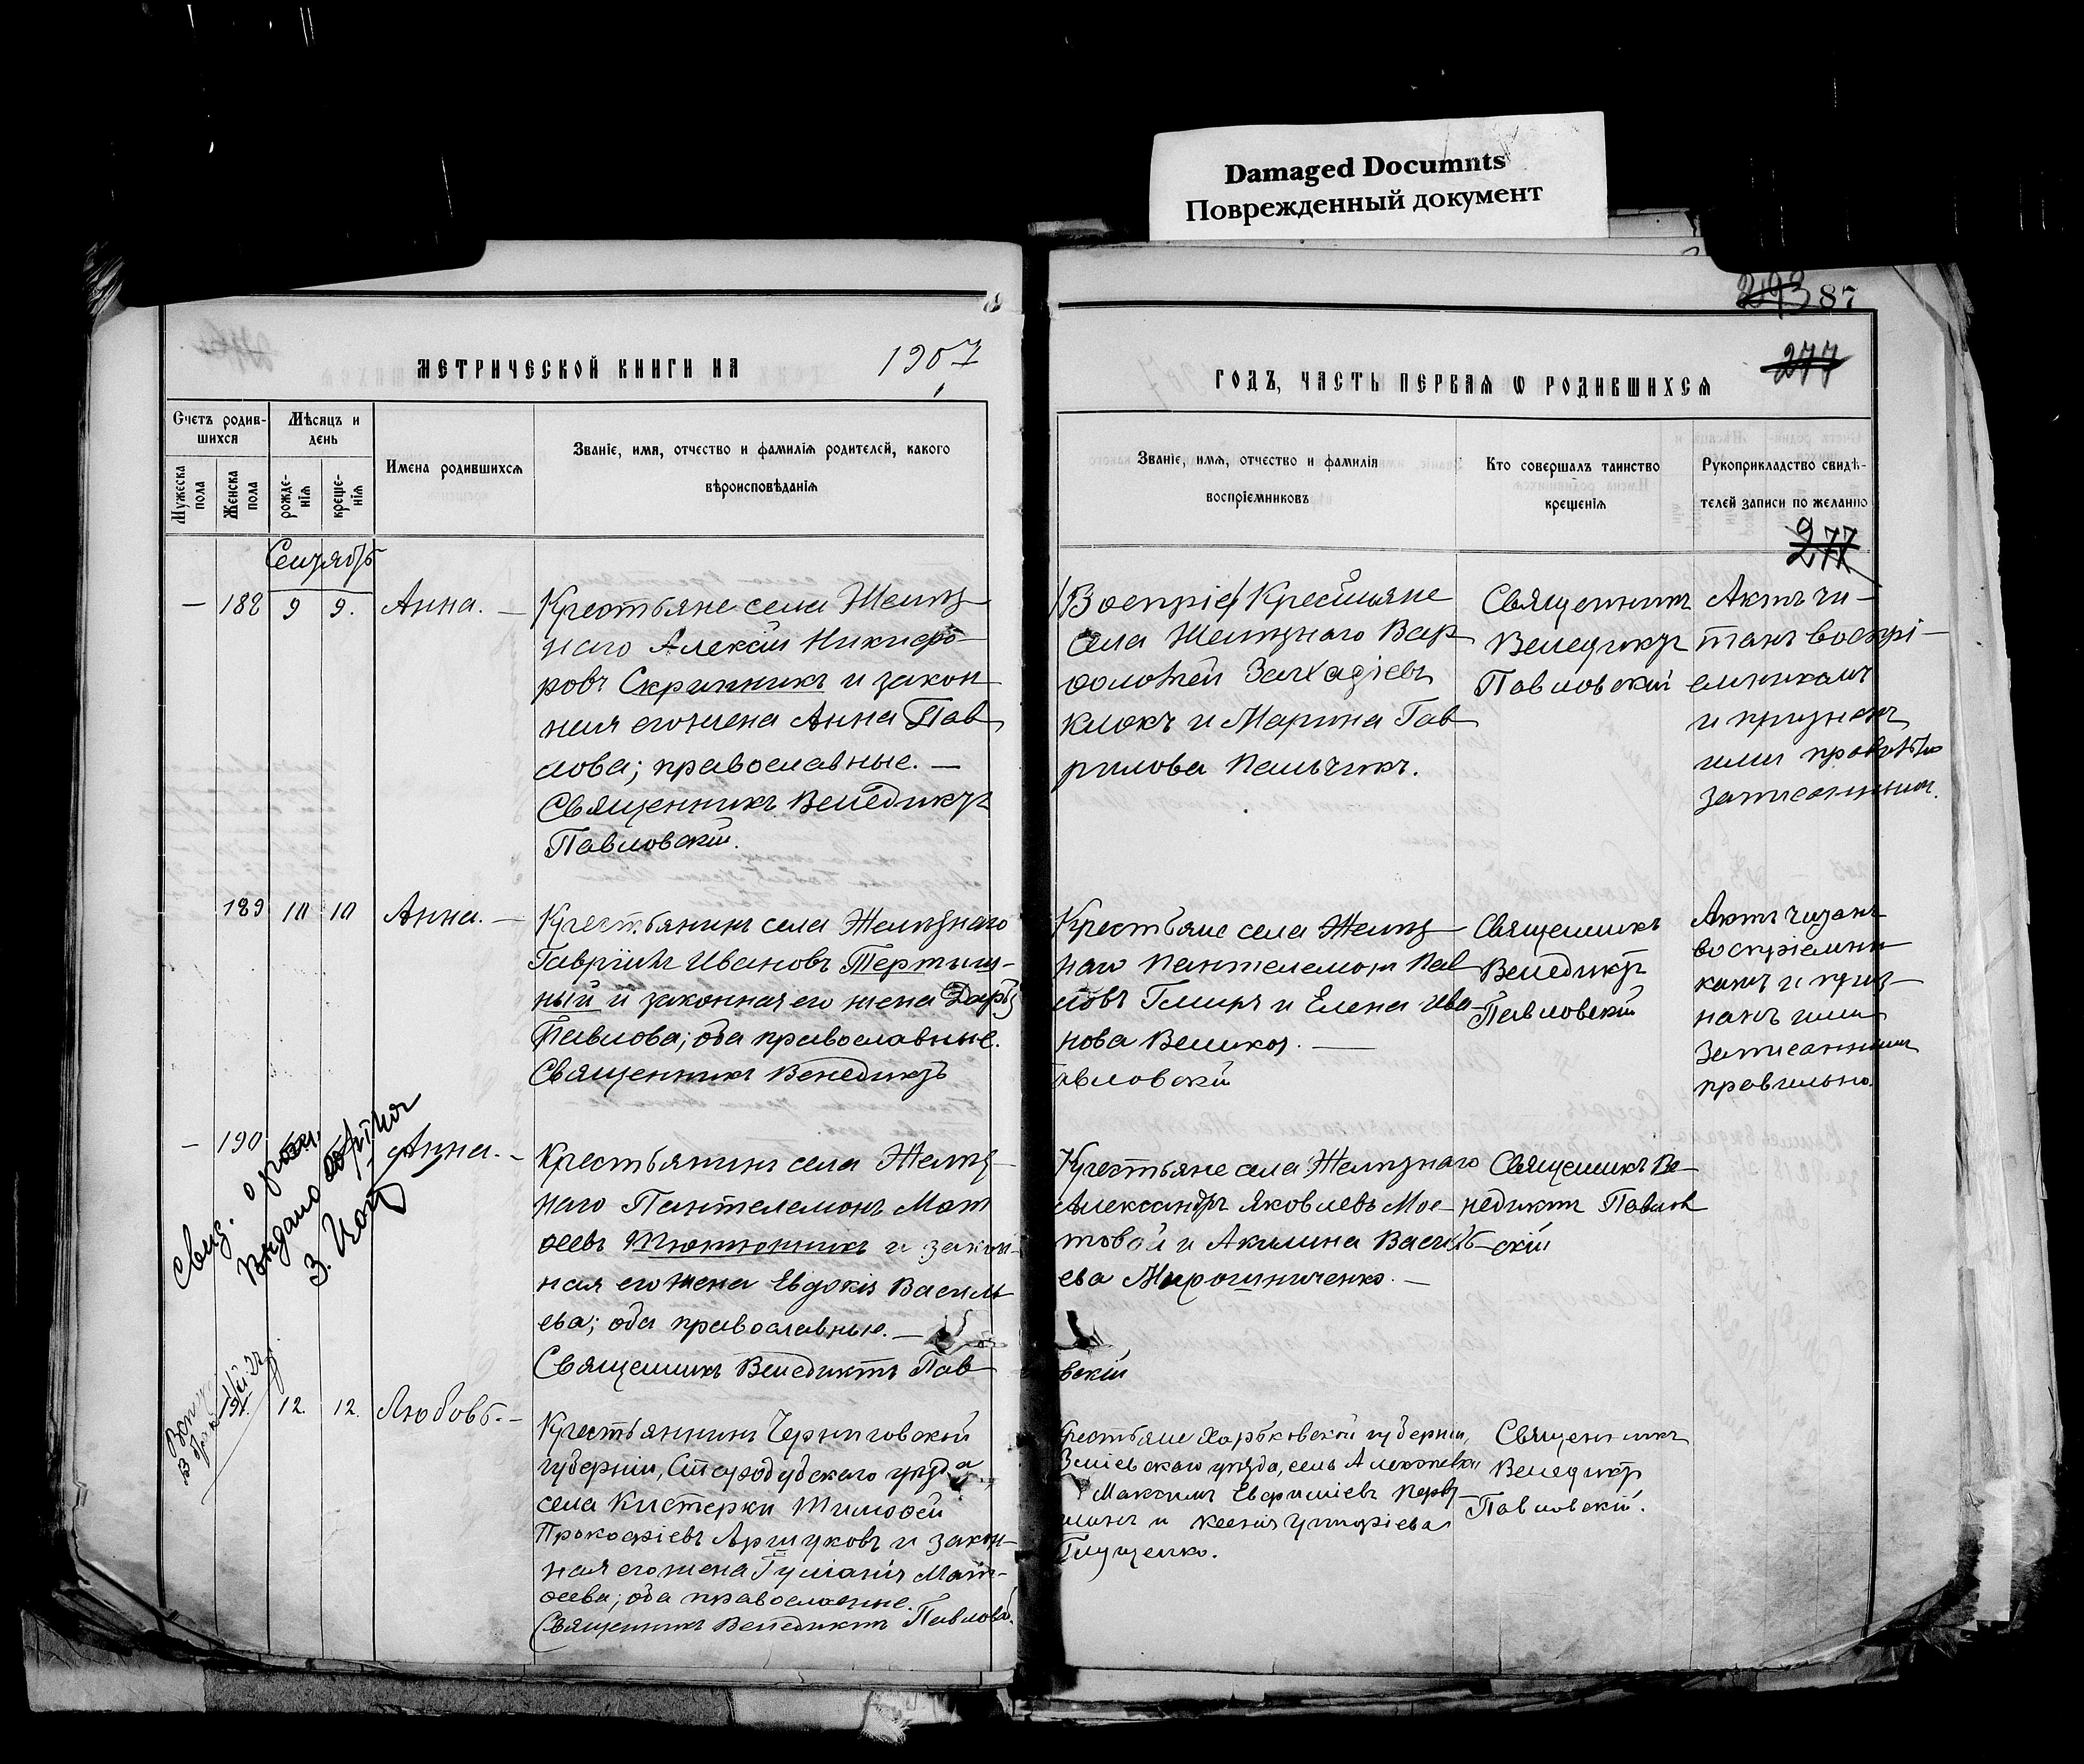 Damaged Documnts
Поврежденный документ
293 87
МЕТРИЧЕСКОЙ КНИГИ НА 1907
ГОДЪ, ЧАСТЬ ПЕРВАЯ Ѡ РОДИВШИХСЯ
277
Счетъ родив-
шихся
Мужеска пола
Женска пола
Мѣсяцъ и
день
рожде-
нія
креще-
нія
Имена родившихся
Званіе, имя, отчество и фамилія родителей, какого
вѣроисповѣданія
Званіе, имя, отчество и фамилія
воспріемниковъ
Кто совершалъ таинство
крещенія
Рукоприкладство свидѣ-
телей записи по желанію
277
Сентябрь
— 188 9 9. Анна. —
Крестьяне села Желѣз
наго Алексій Никифо
ровъ Скрипникъ и закон
ная его жена Анна Пав
лова; православные. —
Священникъ Венедиктъ
Павловскій.
Воспріе Крестьяне
села Желѣзнаго Вар
ѳоломей
Клюкъ и Марина Гав
рилова Пальчикъ.
Священникъ
Венедиктъ
Павловскій
Актъ чи-
танъ воспрі-
емникамъ
и признанъ
ими правильно
записаннымъ.
189 10 10 Анна. —
Крестьянинъ села Желѣзнаго
Гавріилъ Ивановъ Тертыш-
ный и законная его жена Дарья
Павлова; оба православные.
Священникъ Венедиктъ
Крестьяне села Желѣз
наго Пантелемонъ Пав
ловъ и Елена Ива
нова Великоз. —
авловскій
Священникъ
Венедиктъ
Павловскій
Актъ читанъ
воспріемни
камъ и приз-
нанъ ими
записаннымъ
правильно.
— 190 Анна. —
Свид. о рожд.
Выдано
З.
Крестьянинъ села Желѣз-
наго Пантелемонъ Мат
ѳеевъ Тютюнникъ и закон-
ная его жена Евдокія Василь
ева; оба православные. —
Священникъ Венедиктъ Пав
Крестьяне села Желѣзнаго
Александръ Яковлевъ Мос-
товой и Акилина Василь-
ева Мирошниченко. —
вскій
Священникъ Ве-
недиктъ Павлов
скій
191. 12. 12. Любовь. —
Крестьянинъ Черниговской
губерніи, Стародубского уѣзда
села Кистерки Тимофей
Прокофіевъ Аршуковъ и закон-
ная его жена Гуліанія Мат-
ѳеева; оба православные.
Священникъ Венедиктъ Павловс.
Крестьяне Харьковской губерніи,
Зміевскаго уѣзда, села Алексѣевки
Максимъ
и Ксенія
Глущенко.
Священникъ
Венедиктъ
Павловскій.